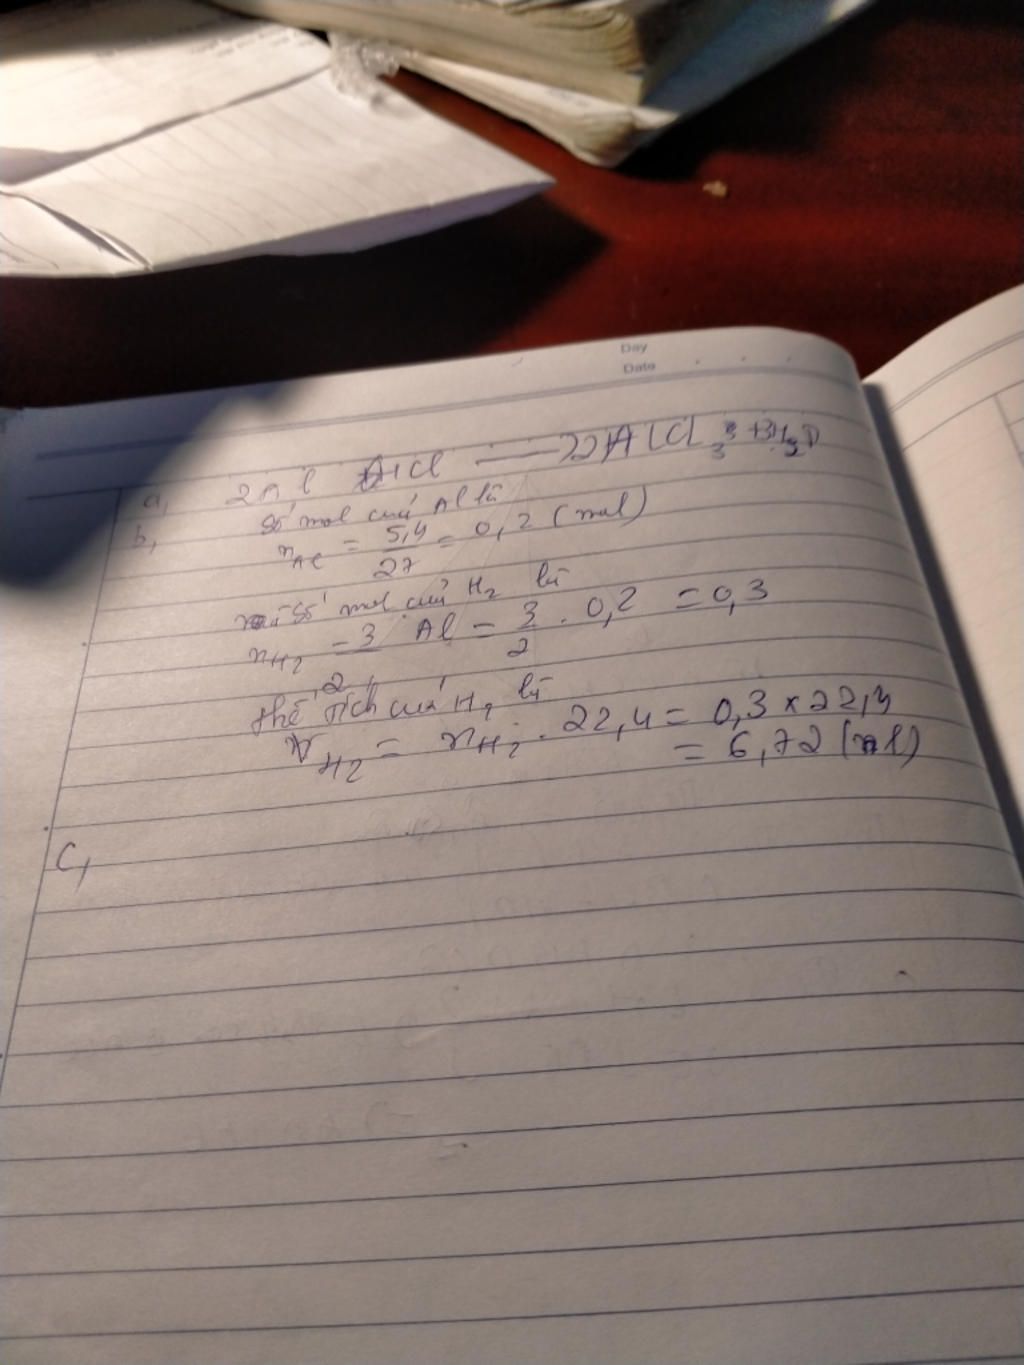 Day
Date
a, 2Al HCl → 2AlCl3 + 3H2
b, số mol của Al là
nAl = 5,4/27 = 0,2 (mol)
số mol của H2 là
nH2 = 3/2 Al = 3/2 . 0,2 = 0,3
thể tích của H2 là
VH2 = nH2 . 22,4 = 0,3 x 22,4
= 6,72 (l)
C,